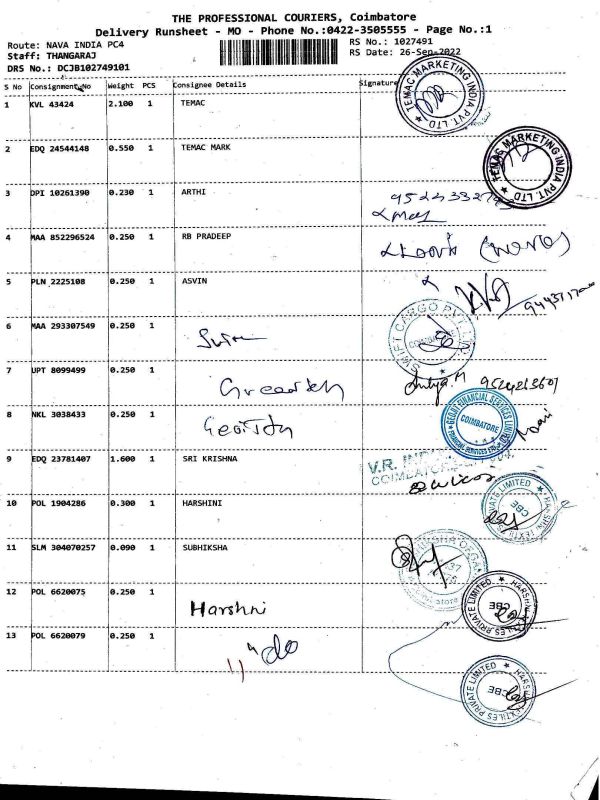 THE PROFESSIONAL COURIERS, Coimbatore
Delivery Runsheet - MO - Phone No.:0422-3505555 - Page No.:1
Route: NAVA INDIA PC4 RS No.: 1027491
Staff: THANGARAJ RS Date: 26-Sep-2022
DRS No.: DCJB102749101
S No Consignment No Weight PCS Consignee Details Signature
1 KVL 43424 2.100 1 TEMAC
TEMAC MARKETING INDIA PVT. LTD
2 EDQ 24544148 0.550 1 TEMAC MARK
TEMAC MARKETING INDIA PVT. LTD
3 DPI 10261390 0.230 1 ARTHI
4 MAA 852296524 0.250 1 RB PRADEEP
5 PLN 2225108 0.250 1 ASVIN
6 MAA 293307549 0.250 1
SWIFT CARGO PVT. LTD
7 UPT 8099499 0.250 1
9524213601
8 NKL 3038433 0.250 1
GEOJIT FINANCIAL SERVICES LIMITED
COIMBATORE
9 EDQ 23781407 1.600 1 SRI KRISHNA
V.R.
COIMBATORE
10 POL 1904286 0.300 1 HARSHINI
HARSHNI TEXTILES PRIVATE LIMITED
CBE
11 SLM 304070257 0.090 1 SUBHIKSHA
12 POL 6620075 0.250 1 Harshni
HARSHNI TEXTILES PRIVATE LIMITED
CBE
13 POL 6620079 0.250 1 " do
HARSHNI TEXTILES PRIVATE LIMITED
CBE